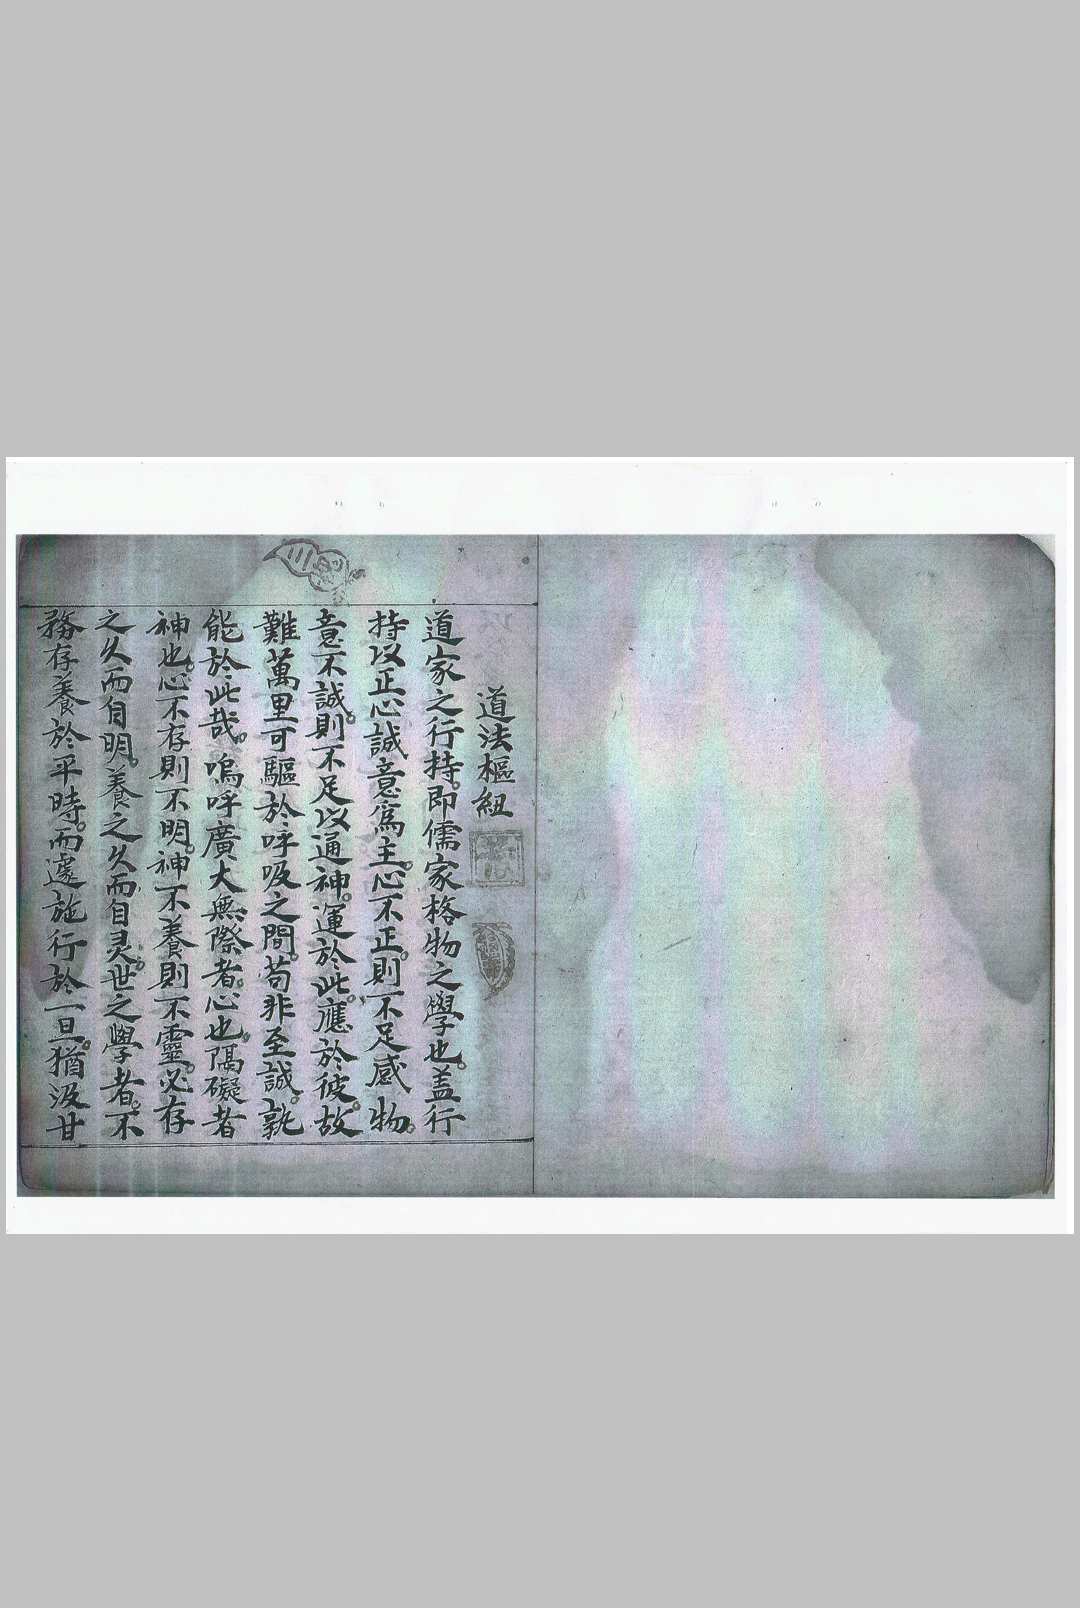 道法樞紐
道家之行持。即儒家格物之學也。盖行
持以正心誠意爲主。心不正。則不足感物。
意不誠。則不足以通神。運於此。應於彼。故
難萬里可驅於呼吸之間。苟非至誠。孰
能於此哉。嗚呼廣大無際者。心也。隔礙者
神也。心不存則不明。神不養則不靈。必存
之久而自明。養之久而自灵。世之學者。不
務存養於平時。而遽施行於一旦。猶汲甘